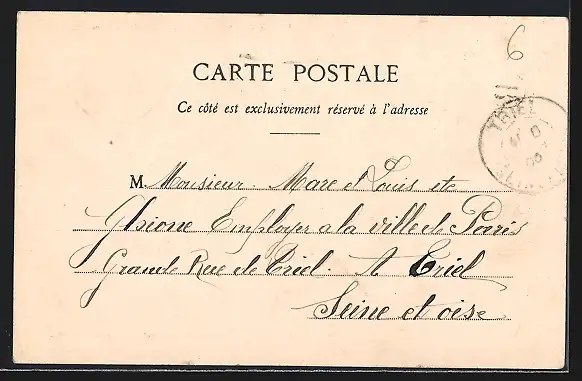 6
CARTE POSTALE
Ce côté est exclusivement réservé à l'adresse
TRIEL
M. Monsieur. Marc et Louis et
Ghione Employer a la ville de Paris
Grande Rue de Triel. A Triel
Seine et oise